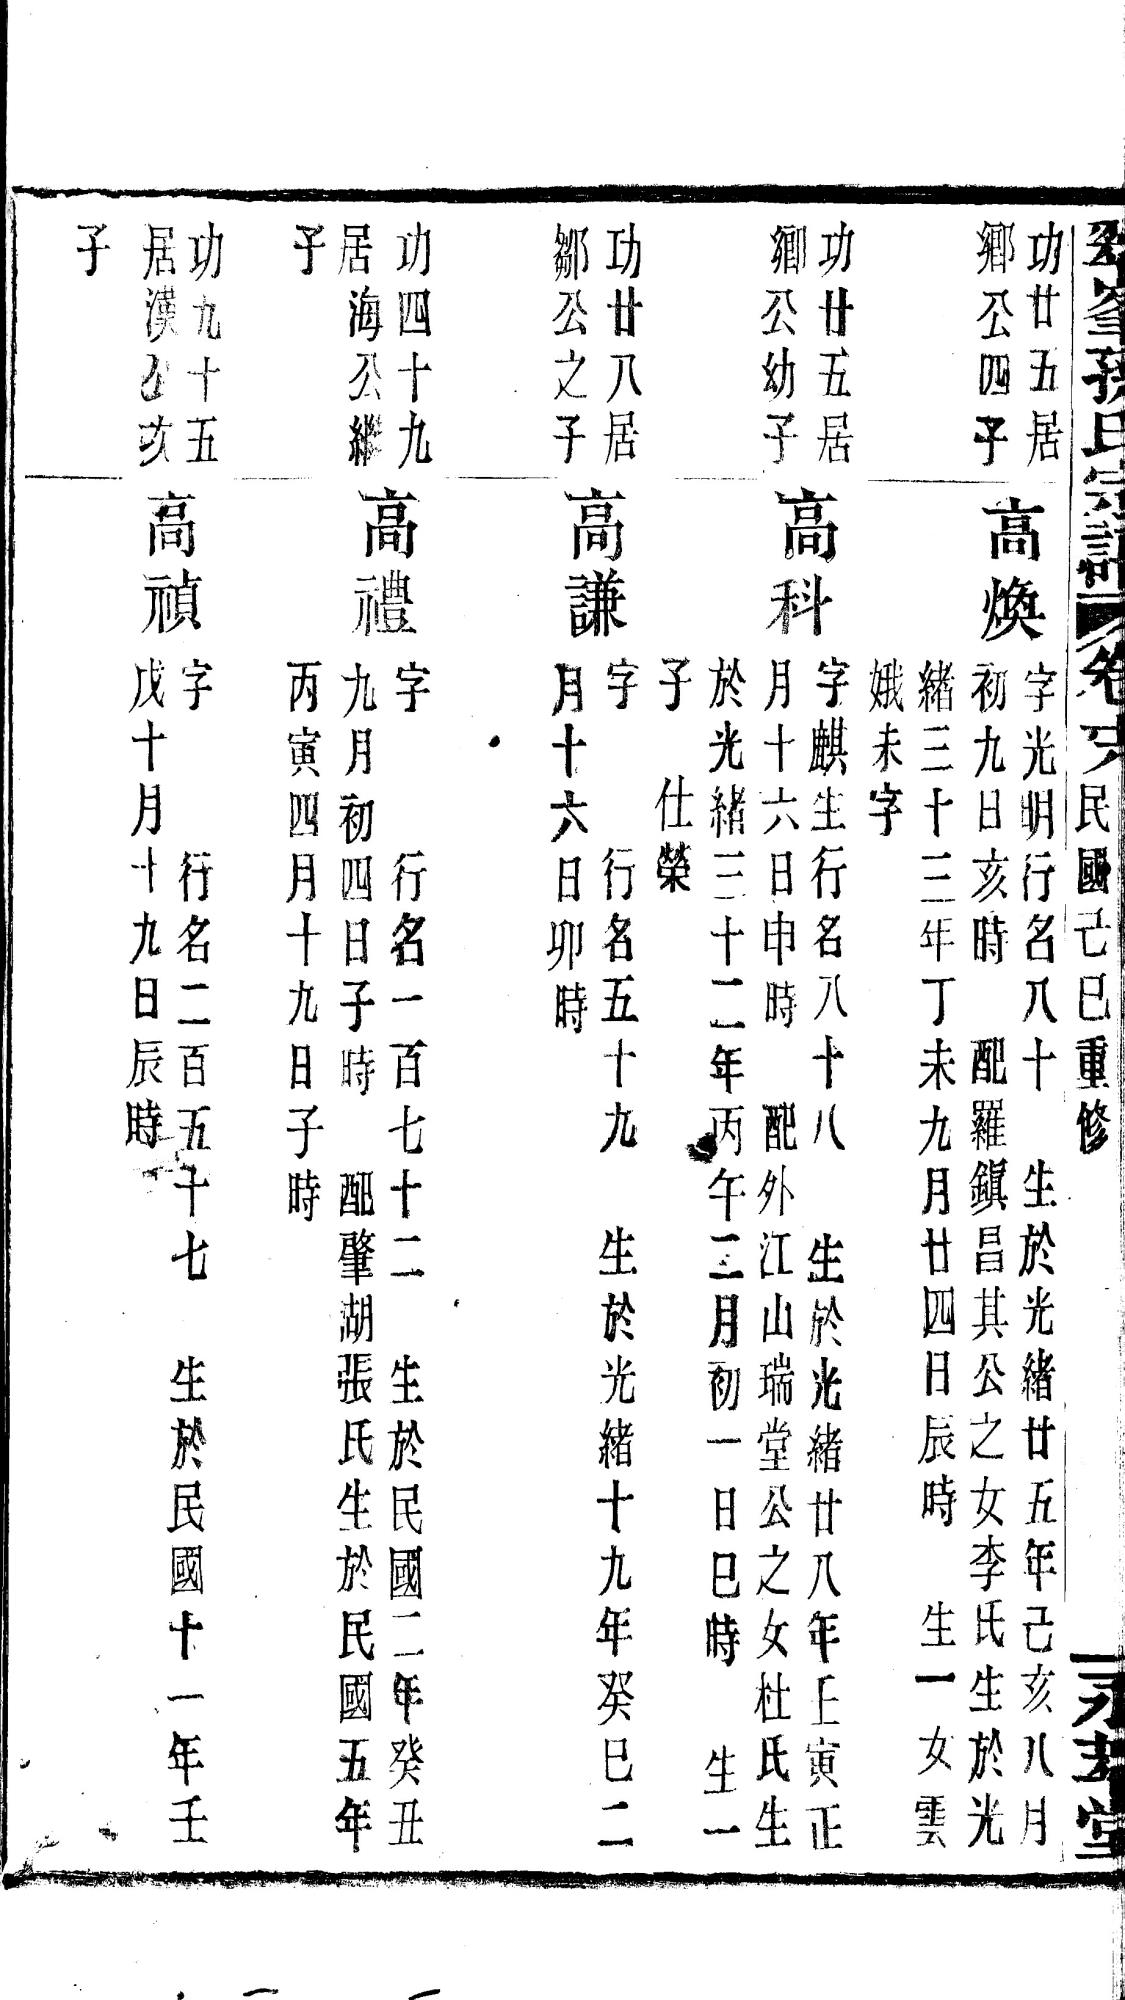 峯孫氏宗譜 卷 民國己巳重修 堂
功廿五居
鄉公四子
高煥
字光明行名八十 生於光緒廿五年己亥八月
初九日亥時 配羅鎭昌其公之女李氏生於光
緒三十三年丁未九月廿四日辰時 生一女雲
娥未字
功廿五居
鄉公幼子
高科
字麒生行名八十八 生於光緒廿八年壬寅正
月十六日申時 配外江山瑞堂公之女杜氏生
於光緒三十二年丙午三月初一日巳時 生一
子 仕榮
功廿八居
鄒公之子
高謙
字 行名五十九 生於光緒十九年癸巳二
月十六日卯時
功四十九
居海公繼
子
高禮
字 行名一百七十二 生於民國二年癸丑
九月初四日子時 配肇湖張氏生於民國五年
丙寅四月十九日子時
功九十五
居漢公亥
子
高禎
字 行名二百五十七 生於民國十一年壬
戊十月十九日辰時